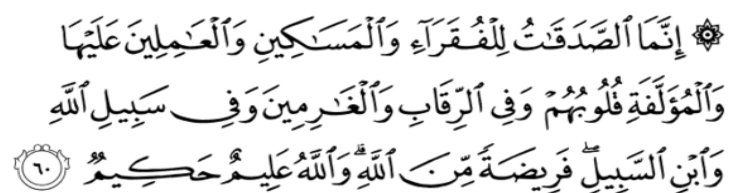 ۞ إِنَّمَا ٱلصَّدَقَٰتُ لِلْفُقَرَآءِ وَٱلْمَسَٰكِينِ وَٱلْعَٰمِلِينَ عَلَيْهَا
وَٱلْمُؤَلَّفَةِ قُلُوبُهُمْ وَفِى ٱلرِّقَابِ وَٱلْغَٰرِمِينَ وَفِى سَبِيلِ ٱللَّهِ
وَٱبْنِ ٱلسَّبِيلِۖ فَرِيضَةً مِّنَ ٱللَّهِۗ وَٱللَّهُ عَلِيمٌ حَكِيمٌ ٦٠